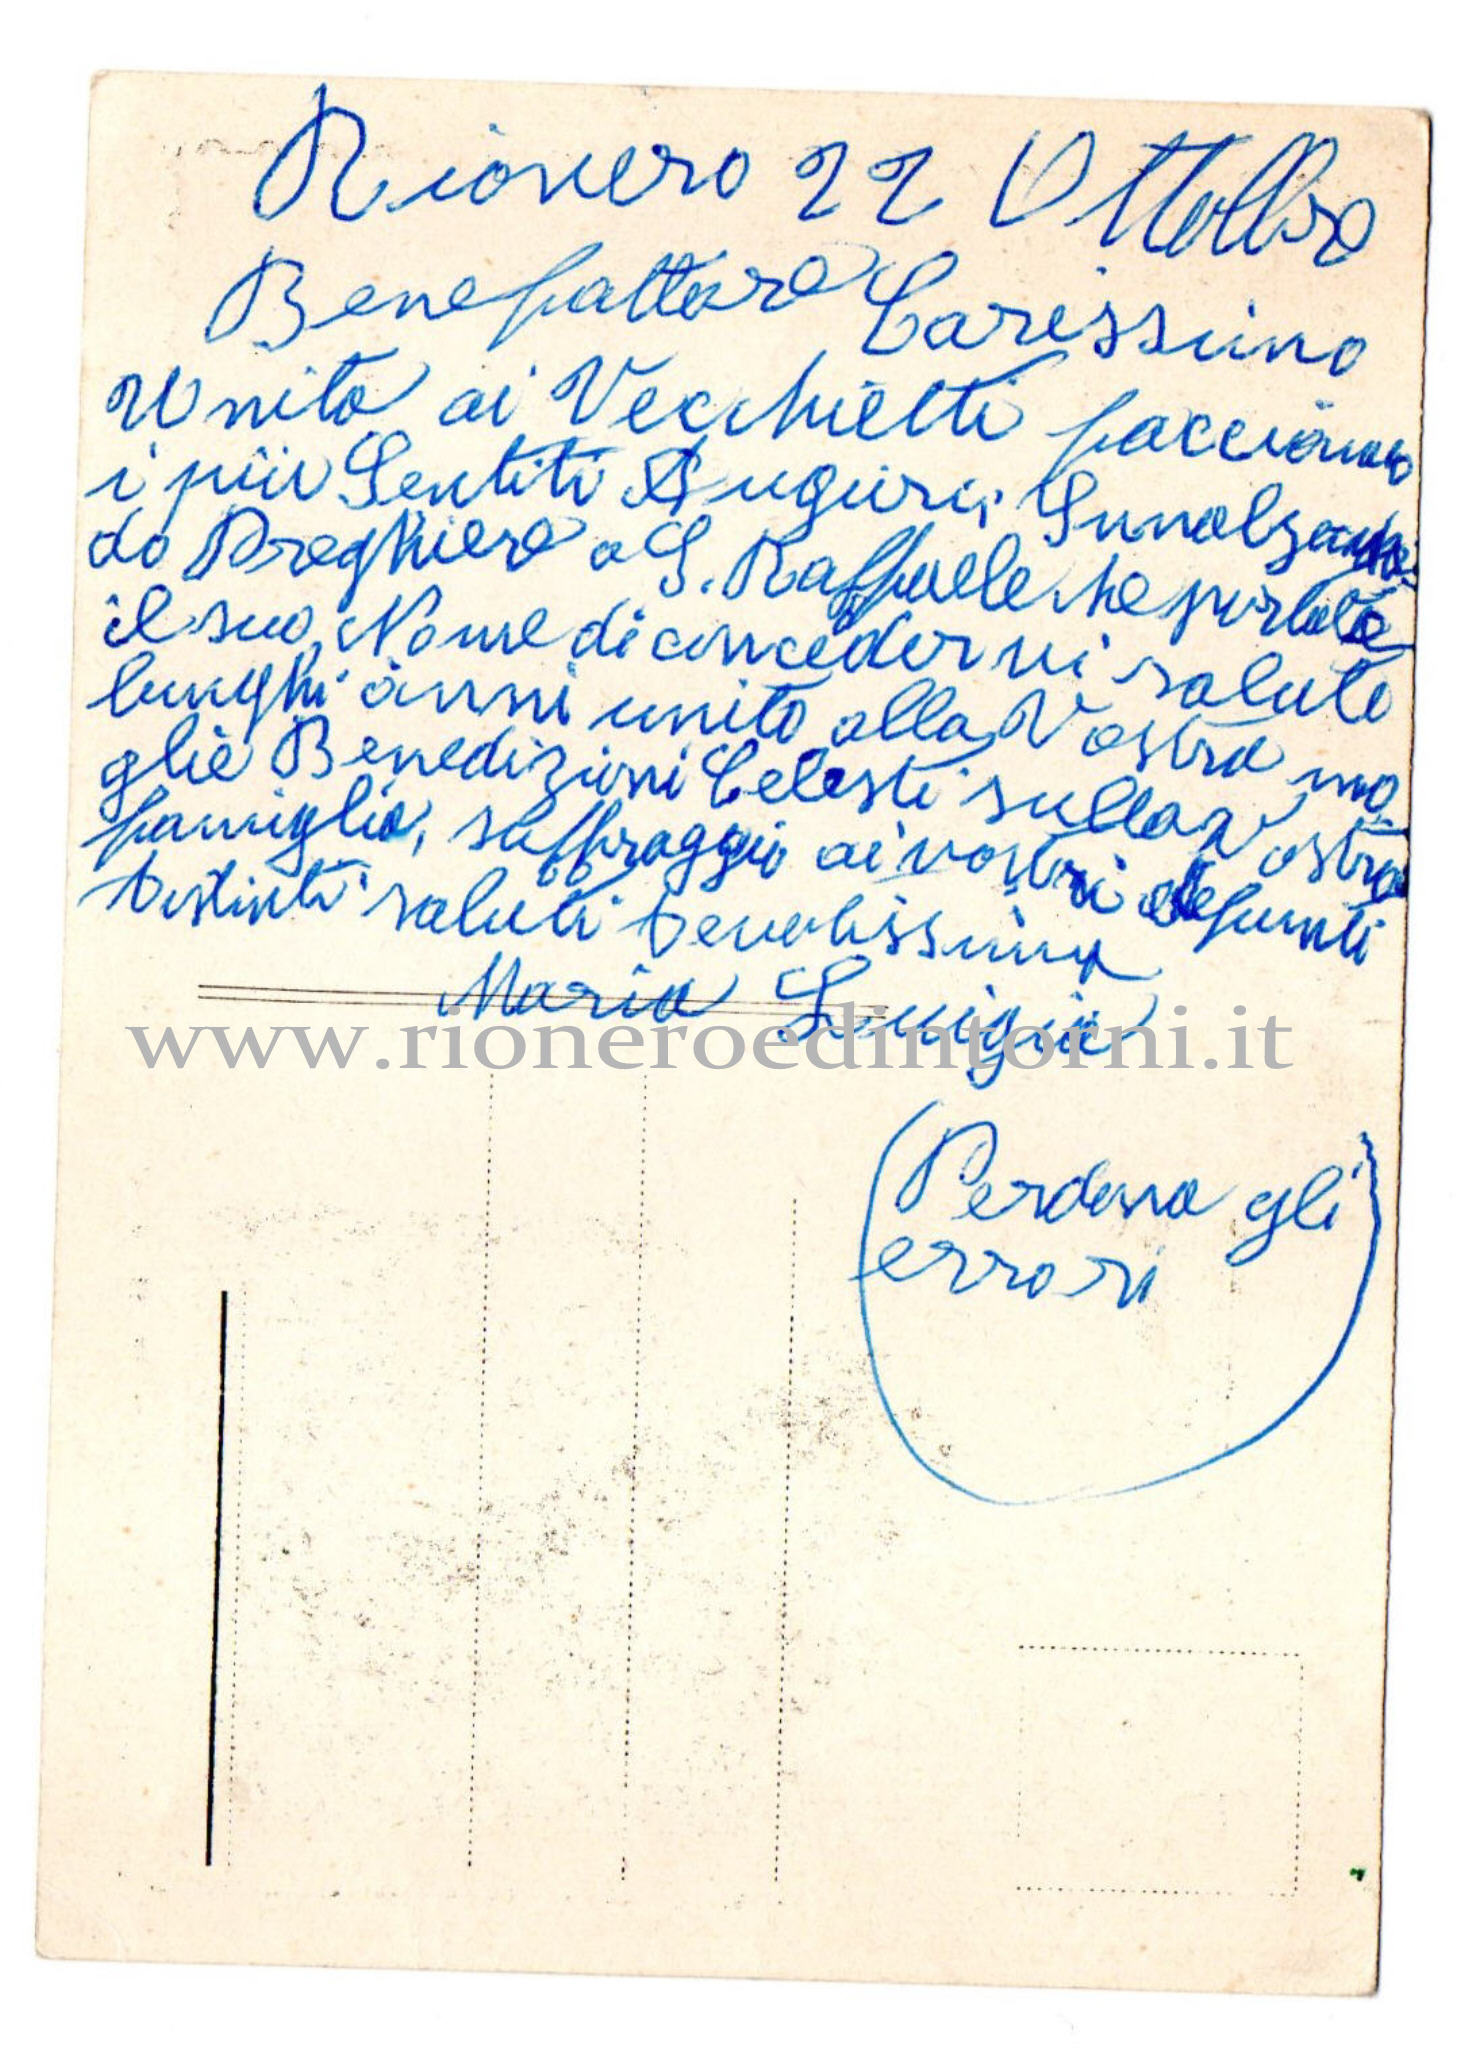 Rionero 22 Ottobre
Benefattore Carissimo
Unito ai Vecchietti facciamo
i più Sentiti Auguri, Innalzan
do Preghiere a S. Raffaele che portate
il suo Nome di concedervi salute
lunghi anni unito alla Vostra mo
glie Benedizioni Celesti sulla Vostra
famiglia, suffraggio ai vostri defunti
Distinti saluti Devotissima
Maria Luigia
www.rioneroedintorni.it
(Perdona gli
errori)